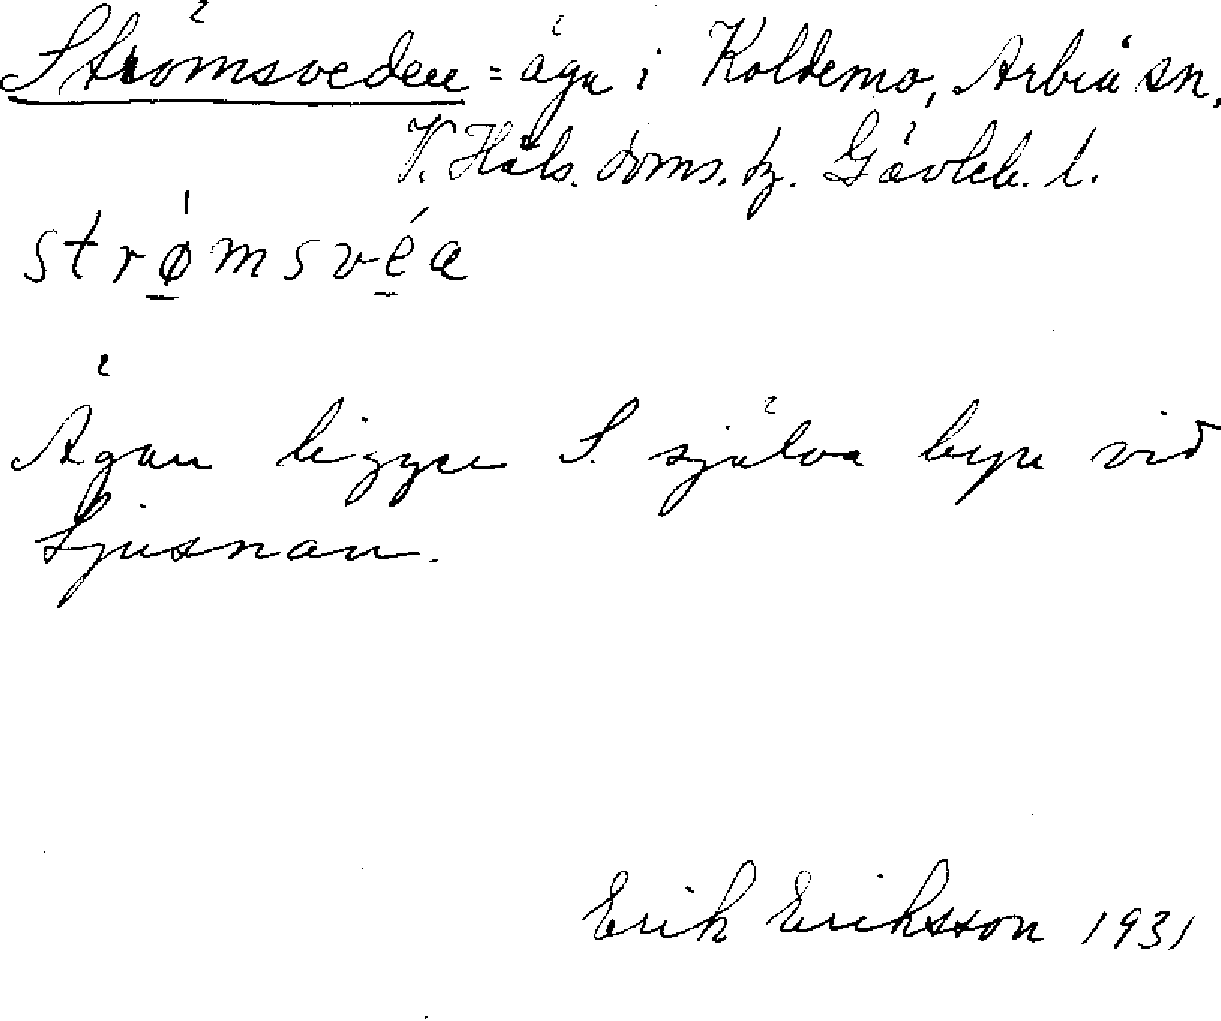 Strömsveden = äga i Koldemo, Arbrå sn.
V. Häls. doms. hz. Gävleb. l.
strømsvéa
Ägan ligger S. själva byn vid
Ljusnan.
Erik Eriksson 1931